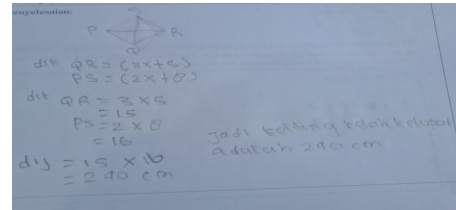 enyelesaian:
P R
Q
dit QR = (3x+5)
PS = (2x+8)
dit QR = 3 x 5
= 15
PS = 2 x 8
= 16
dij = 15 x 16
= 240 cm
Jadi keliling
adalah 240 cm